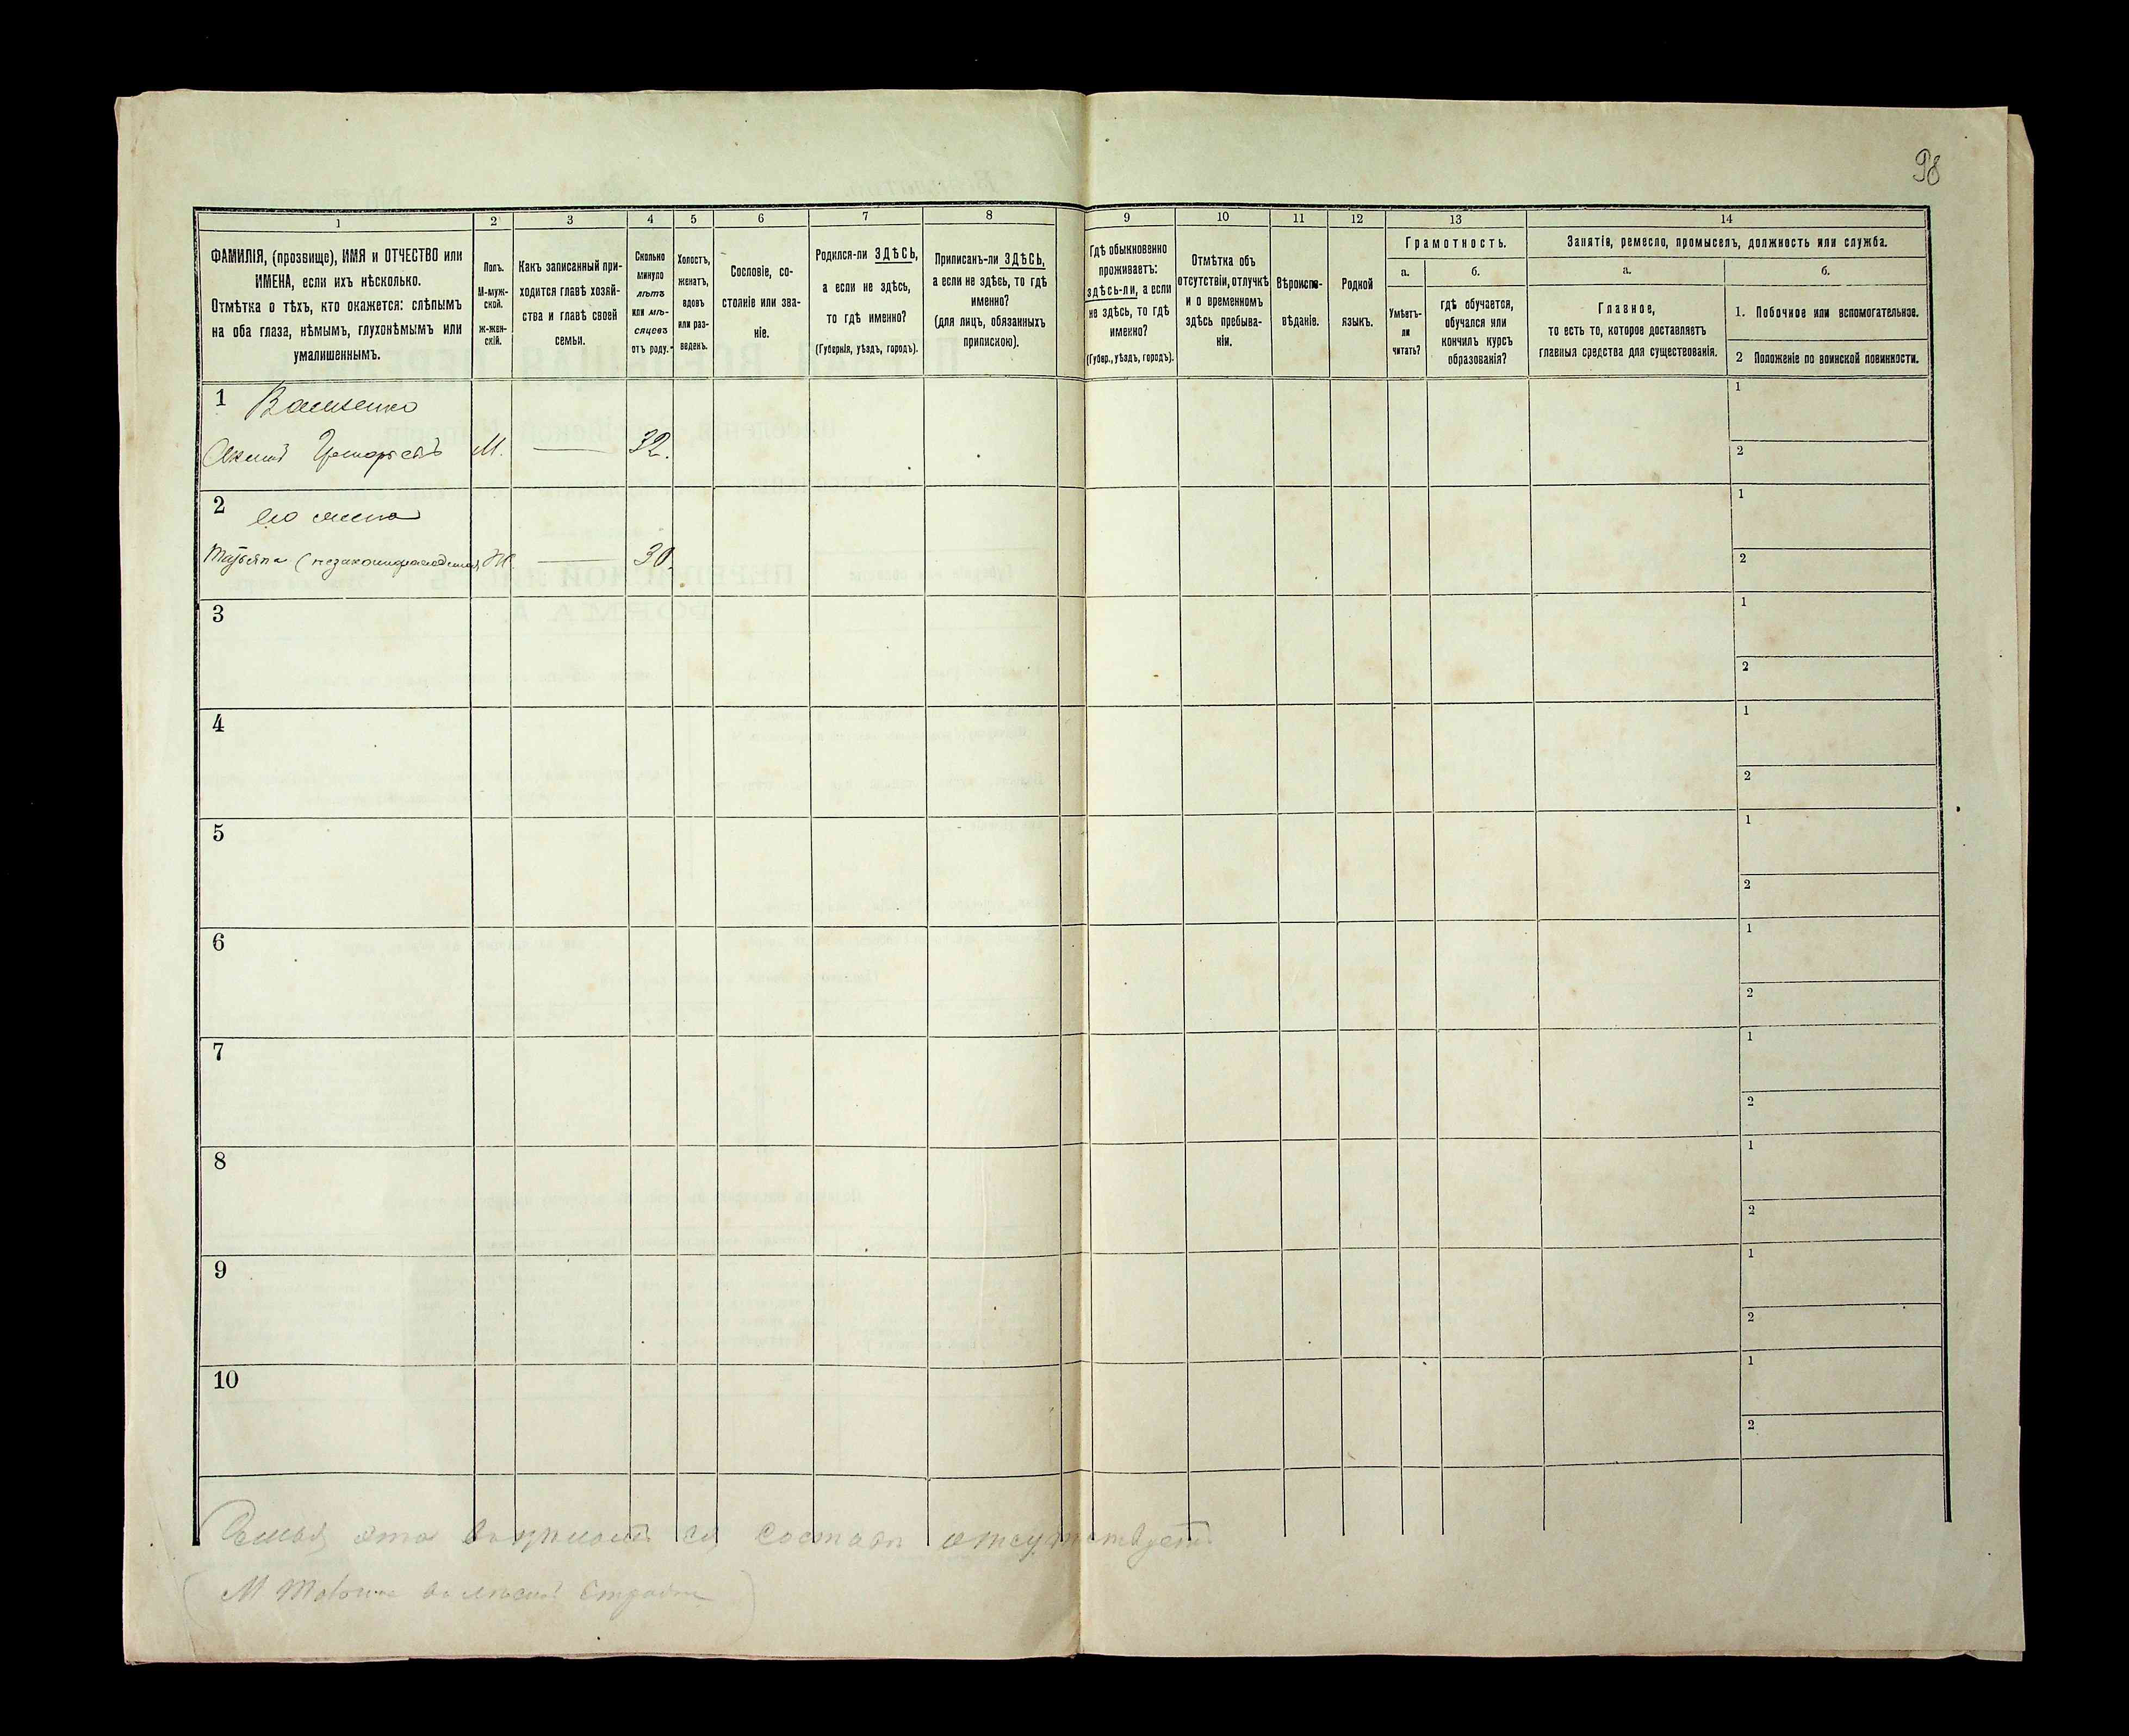 98
1
2
3
4
5
6
7
8
9
10
11
12
13
14
ФАМИЛІЯ, (прозвище), ИМЯ и ОТЧЕСТВО или
ИМЕНА, если ихъ нѣсколько.
Отмѣтка о тѣхъ, кто окажется: слѣпымъ
на оба глаза, нѣмымъ, глухонѣмымъ или
умалишеннымъ.
Полъ.
М-муж-
ской.
Ж-жен-
скій.
Какъ записанный при-
ходится главѣ хозяй-
ства и главѣ своей
семьи.
Сколько
минуло
лѣтъ
или мѣ-
сяцевъ
отъ роду.
Холостъ,
женатъ,
вдовъ
или раз-
веденъ.
Сословіе, со-
стояніе или зва-
ніе.
Родился-ли ЗДѢСЬ,
а если не здѣсь,
то гдѣ именно?
(Губернія, уѣздъ, городъ).
Приписанъ-ли ЗДѢСЬ,
а если не здѣсь, то гдѣ
именно?
(для лицъ, обязанныхъ
припискою).
Гдѣ обыкновенно
проживаетъ:
здѣсь-ли, а если
не здѣсь, то гдѣ
именно?
(Губер., уѣздъ, городъ).
Отмѣтка объ
отсутствіи, отлучкѣ
и о временномъ
здѣсь пребыва-
ніи.
Вѣроиспо-
вѣданіе.
Родной
языкъ.
Грамотность.
а.
б.
Умѣетъ-
ли
читать?
гдѣ обучается,
обучался или
кончилъ курсъ
образованія?
Занятіе, ремесло, промыселъ, должность или служба.
а.
б.
Главное,
то есть то, которое доставляетъ
главныя средства для существованія.
1. Побочное или вспомогательное.
2 Положеніе по воинской повинности.
1
М. 32.
1
2
2 его жена
Татьяна (незаконнорожденная) Ж. 30.
1
2
3
1
2
4
1
2
5
1
2
6
1
2
7
1
2
8
1
2
9
1
2
10
1
2
Семья эта отсутствуетъ